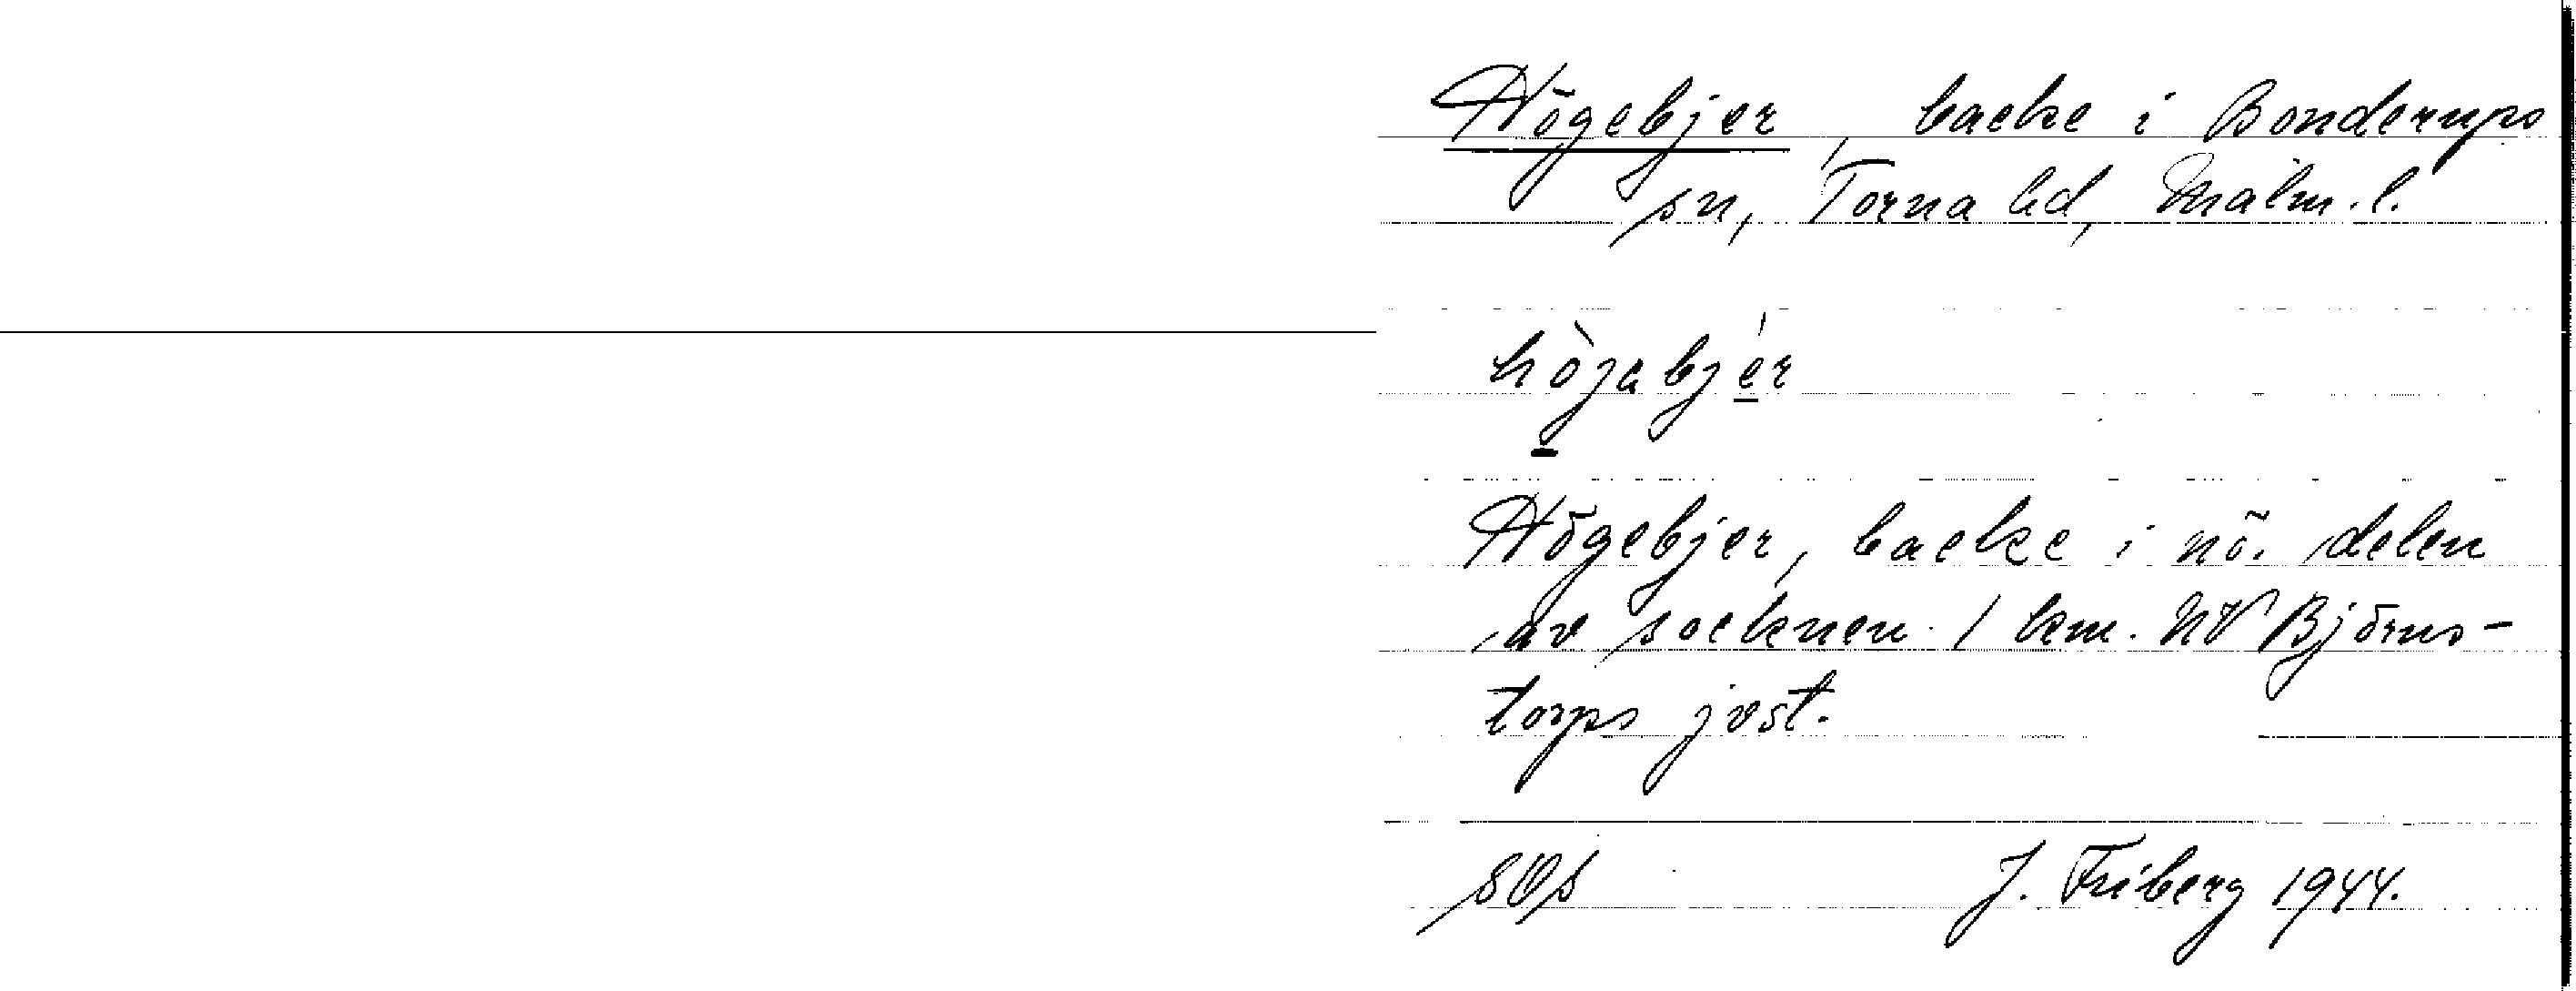 Högebjer, backe i Bonderups
sn, Torna hd, Malm. l.
hòjabjér
Högebjer, backe i nö. delen
av socknen. 1 km. NV Björns-
torps jvst.
J. Friberg 1944.